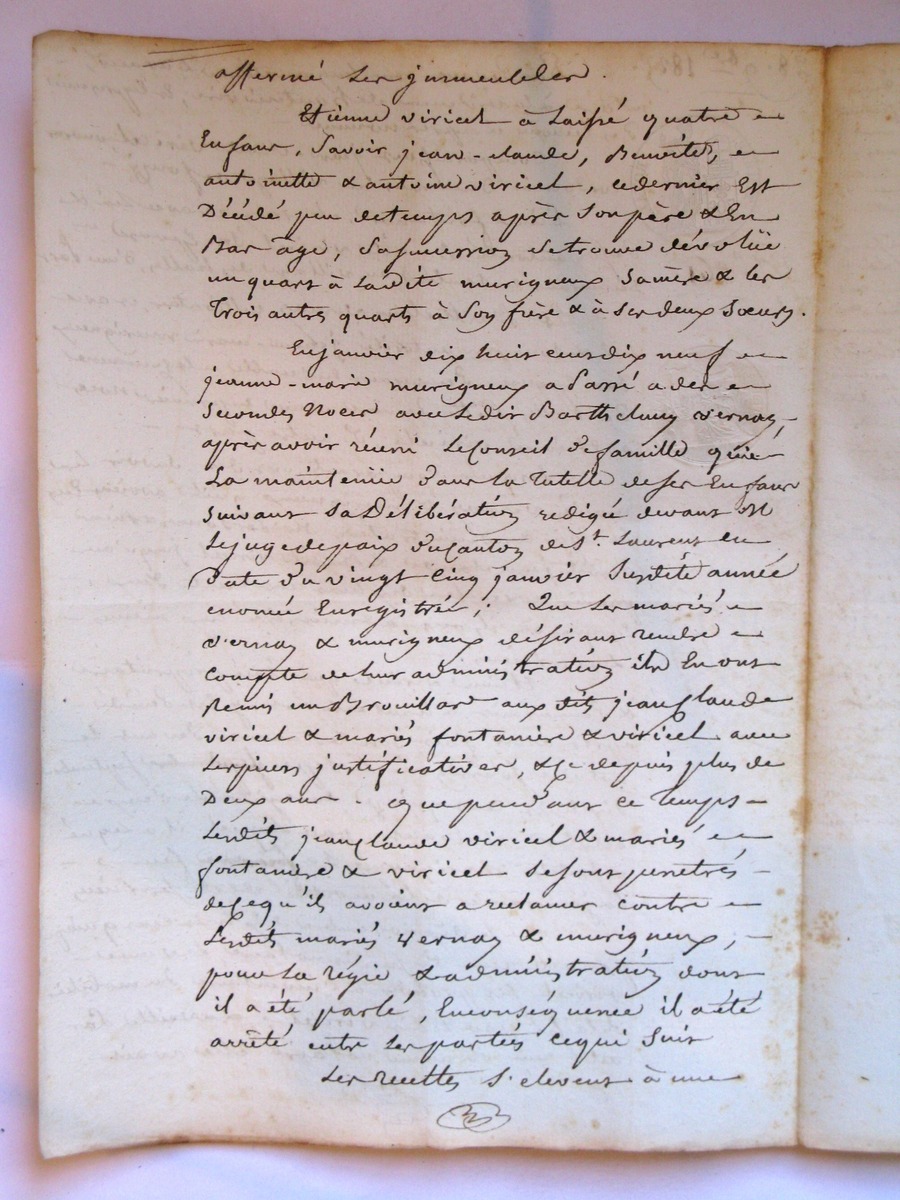 affermé les jmmeubles.
Etienne viricel à laissé quatre
Enfans, Savoir jean-claude, Benoite,
antoinette & antoine viricel, cedernier Est
Décédé peu detemps après Sonpère & En
Bas âge, Sasuccession Setrouve dévolüe
unquart à Ladite murigneux Samère & les
Trois autres quarts à Son frère & à Ses deux Soeurs.
Enjanvier dix huit centdix neuf
jeanne-marie murigneux a Passé a des
Secondes Noces avec Ledit Barthelemy vernay,
après avoir réuni LeConseil defamille qui
La maintenüe dans la Tutelle deses Enfans
Suivant Sa Délibération redigée devant M
Lejugedepaix ducanton de St. Laurent en
date du vingt cinq janvier Susdite année
Enregistrée; Que Les mariés
vernay & murigneux désirant rendre
compte deleur administration ils En ont
Remis un Brouillard aux dits jeanclaude
viricel & mariés fontanière & viricel avec
Lespieces justificatives, &Ce depuis plus de
Deux ans. Que pendant ce Temps
Lesdits jeanclaude viricel & mariés
fontanière & viricel Sesont penetrés
deCequ'ils avoient a reclamer contre
Lesdits mariés vernay & murigneux,
pour La régie & administration dont
il a été parlé, Enconséquence il a été
arrêté entre Les parties cequi Suit
Les recettes S'elevent à une